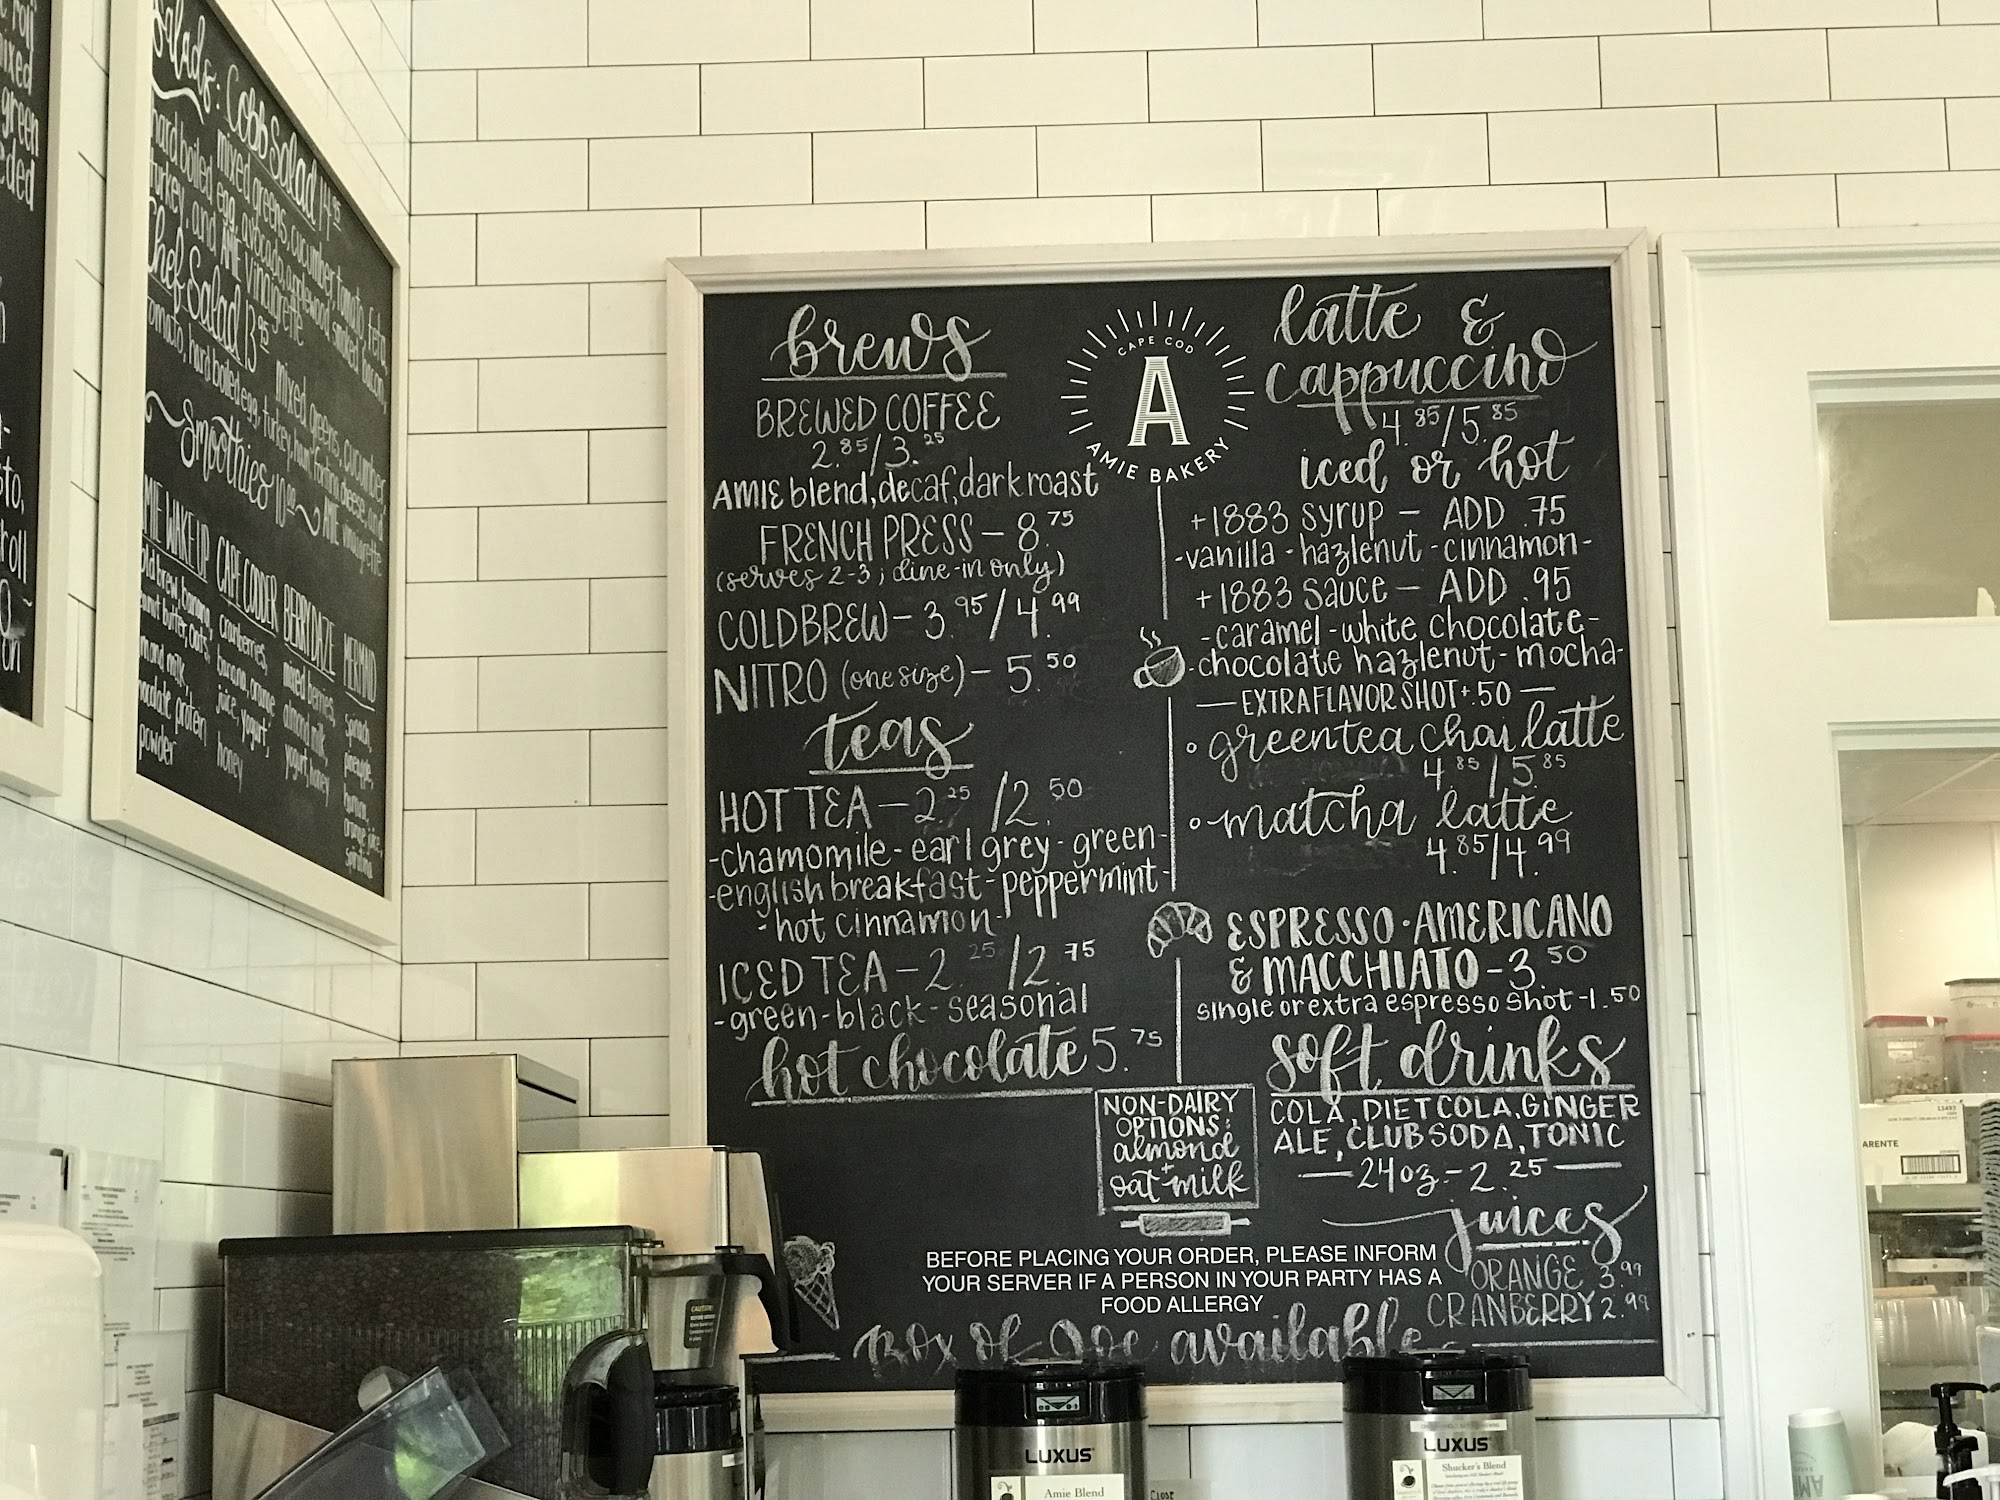 roll
mixed
green
Salads: Cobb Salad 14.95
mixed greens, cucumber, tomato, feta,
hard boiled egg, avocado, applewood smoked bacon,
turkey, and AMIE vinaigrette
Chef Salad 13.95 mixed greens, cucumber,
tomato, hard boiled egg, turkey, ham, fontina cheese, and AMIE vinaigrette
Smoothies 10.00
AMIE WAKE UP
old brew, banana,
peanut butter, oats,
almond milk,
chocolate protein
powder
CAPE CODDER
cranberries,
banana, orange
juice, yogurt,
honey
BERRY DAZE
mixed berries,
almond milk,
yogurt, honey
MERMAID
spinach,
pineapple,
banana,
orange juice,
spirulina
brews
BREWED COFFEE
2.85/3.25
AMIE blend, decaf, dark roast
FRENCH PRESS - 8.75
(serves 2-3; dine-in only)
COLDBREW - 3.95/4.99
NITRO (one size) - 5.50
teas
HOT TEA - 2.25/2.50
-chamomile-earl grey-green-
-english breakfast-peppermint-
-hot cinnamon-
ICED TEA - 2.25/2.75
-green-black-seasonal
hot chocolate 5.75
CAPE COD
A
AMIE BAKERY
latte &
cappuccino
4.85/5.85
iced or hot
+1883 syrup - ADD .75
-vanilla-hazlenut-cinnamon-
+1883 sauce - ADD .95
-caramel-white chocolate-
-chocolate hazlenut-mocha-
— EXTRA FLAVOR SHOT +.50 —
• greentea chai latte
4.85/5.85
• matcha latte
4.85/4.99
ESPRESSO • AMERICANO
& MACCHIATO - 3.50
single or extra espresso shot - 1.50
soft drinks
COLA, DIET COLA, GINGER
ALE, CLUB SODA, TONIC
— 24oz - 2.25 —
NON-DAIRY
OPTIONS:
almond
+
oat milk
juices
ORANGE 3.99
CRANBERRY 2.99
BEFORE PLACING YOUR ORDER, PLEASE INFORM
YOUR SERVER IF A PERSON IN YOUR PARTY HAS A
FOOD ALLERGY
Box of Joe available
CAUTION
LUXUS
Amie Blend
LUXUS
Shucker's Blend
ARENTE
13493
AMIE